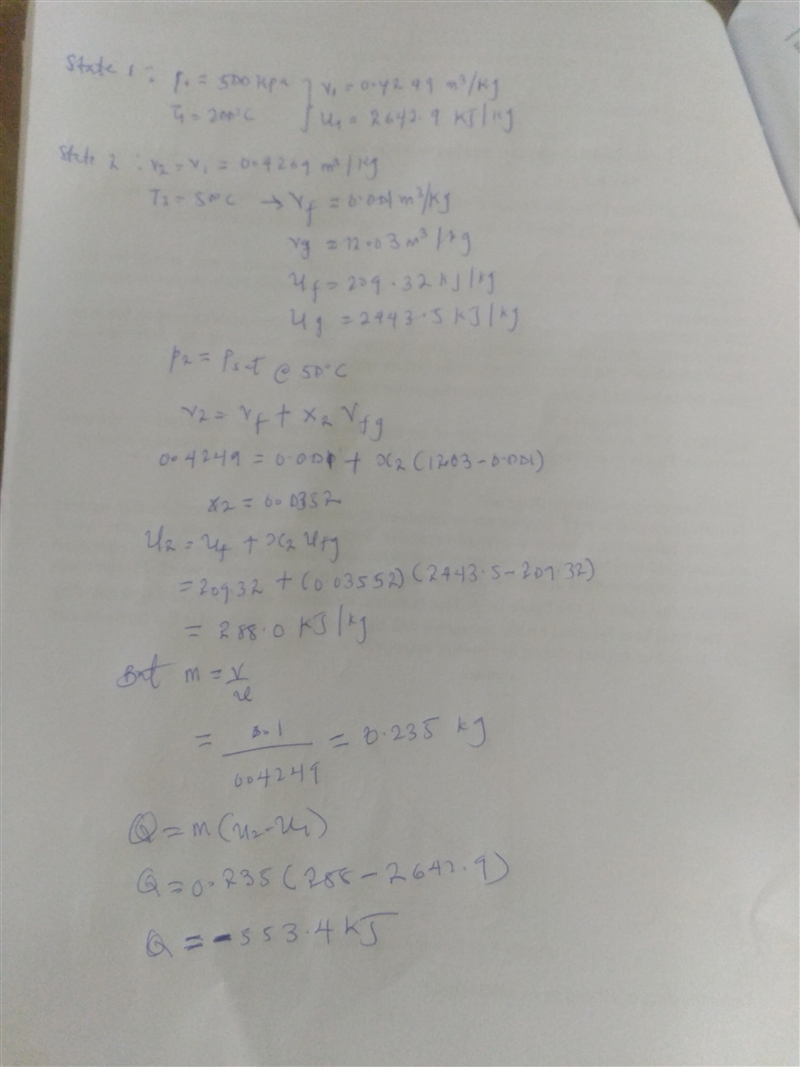 State 1: P1 = 500 kPa } v1 = 0.4249 m³/kg
T1 = 200°C } u1 = 2642.9 kJ/kg
State 2: v2 = v1 = 0.4249 m³/kg
T2 = 50°C → vf = 0.001 m³/kg
vg = 12.03 m³/kg
uf = 209.32 kJ/kg
ug = 2443.5 kJ/kg
P2 = Psat @ 50°C
v2 = vf + x2 vfg
0.4249 = 0.001 + x2 (1203 - 0.001)
x2 = 0.0352
u2 = uf + x2 ufg
= 209.32 + (0.03552) (2443.5 - 209.32)
= 288.0 kJ/kg
But m = v/u
= 0.1/0.4249 = 0.235 kg
Q = m (u2 - u1)
Q = 0.235 (288 - 2642.9)
Q = -553.4 kJ